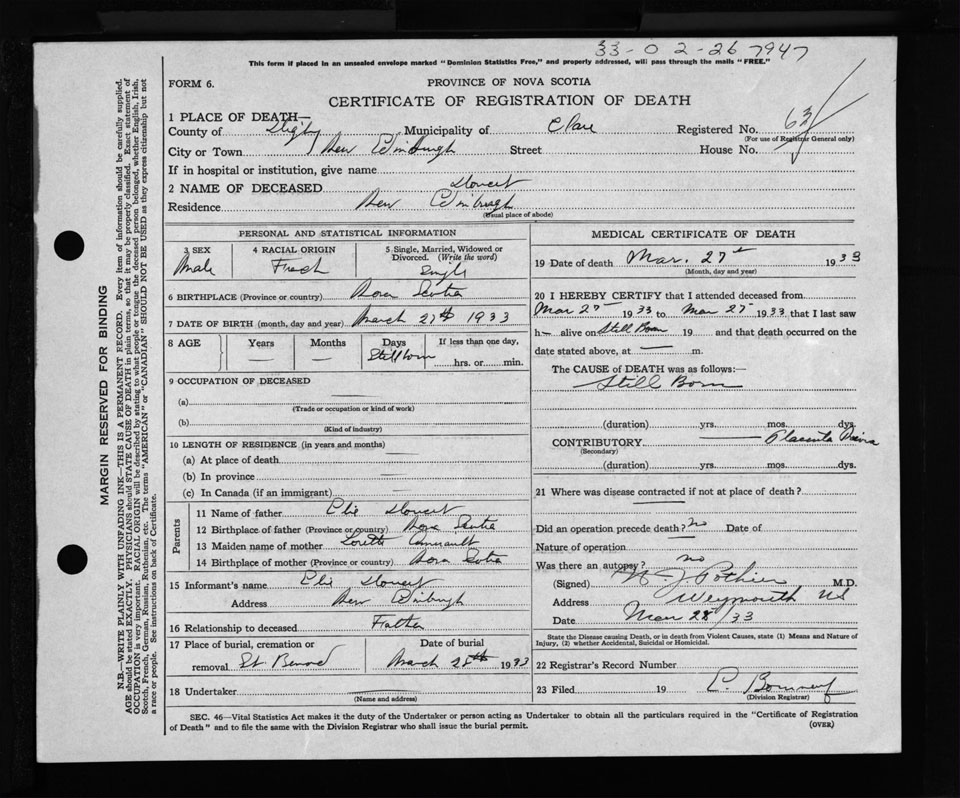 33-0 2-26 7947
This form if placed in an unsealed envelope marked "Dominion Statistics Free," and properly addressed, will pass through the mails "FREE."
FORM 6.
PROVINCE OF NOVA SCOTIA
CERTIFICATE OF REGISTRATION OF DEATH
1 PLACE OF DEATH—
County of Digby Municipality of Clare Registered No. 63
(For use of Registrar General only)
City or Town New Edinburgh Street House No.
If in hospital or institution, give name
2 NAME OF DECEASED Doucet
Residence New Edinburgh
(Usual place of abode)
PERSONAL AND STATISTICAL INFORMATION
3 SEX 4 RACIAL ORIGIN 5 Single, Married, Widowed or
Divorced. (Write the word)
Male French Single
6 BIRTHPLACE (Province or country) Nova Scotia
7 DATE OF BIRTH (month, day and year) March 27th 1933
8 AGE Years Months Days If less than one day,
— — Stillborn hrs. or min.
9 OCCUPATION OF DECEASED
(a) —
(Trade or occupation or kind of work)
(b)
(Kind of industry)
10 LENGTH OF RESIDENCE (in years and months)
(a) At place of death
(b) In province —
(c) In Canada (if an immigrant) —
Parents
11 Name of father Elie Doucet
12 Birthplace of father (Province or country) Nova Scotia
13 Maiden name of mother Loretta
14 Birthplace of mother (Province or country) Nova Scotia
15 Informant's name Elie Doucet
Address New Edinburgh
16 Relationship to deceased Father
17 Place of burial, cremation or Date of burial
removal St. Bernard March 28th 1933
18 Undertaker
(Name and address)
MEDICAL CERTIFICATE OF DEATH
19 Date of death Mar. 27 1933
(Month, day and year)
20 I HEREBY CERTIFY that I attended deceased from
Mar 27 1933 to Mar 27 1933, that I last saw
h— alive on Still Born 19 and that death occurred on
date stated above, at — m.
The CAUSE of DEATH was as follows:—
Still Born
(duration) yrs. mos. dys.
CONTRIBUTORY — Placenta Previa
(Secondary)
(duration) yrs. mos. dys.
21 Where was disease contracted if not at place of death?
Did an operation precede death? no Date of
Nature of operation —
Was there an autopsy? no
(Signed) Pothier, M.D.
Address Weymouth NS
Date Mar 28/33
State the Disease causing Death, or in death from Violent Causes, state (1) Means and Nature of
Injury, (2) whether Accidental, Suicidal or Homicidal.
22 Registrar's Record Number
23 Filed 19
(Division Registrar)
SEC. 46—Vital Statistics Act makes it the duty of the Undertaker or person acting as Undertaker to obtain all the particulars required in the "Certificate of Registration
of Death" and to file the same with the Division Registrar who shall issue the burial permit. (OVER)
MARGIN RESERVED FOR BINDING
N.B.—WRITE PLAINLY WITH UNFADING INK—THIS IS A PERMANENT RECORD. Every item of information should be carefully supplied.
AGE should be stated EXACTLY. PHYSICIANS should STATE CAUSE OF DEATH in plain terms, so that it may be properly classified. Exact statement of
OCCUPATION is very important. RACIAL ORIGIN will be described by stating to what people or tongue the deceased person belonged, whether English, Irish,
Scotch, French, German, Russian, Ruthenian, etc. The terms "AMERICAN" or "CANADIAN" SHOULD NOT BE USED as they express citizenship but not
a race or people. See instructions on back of Certificate.